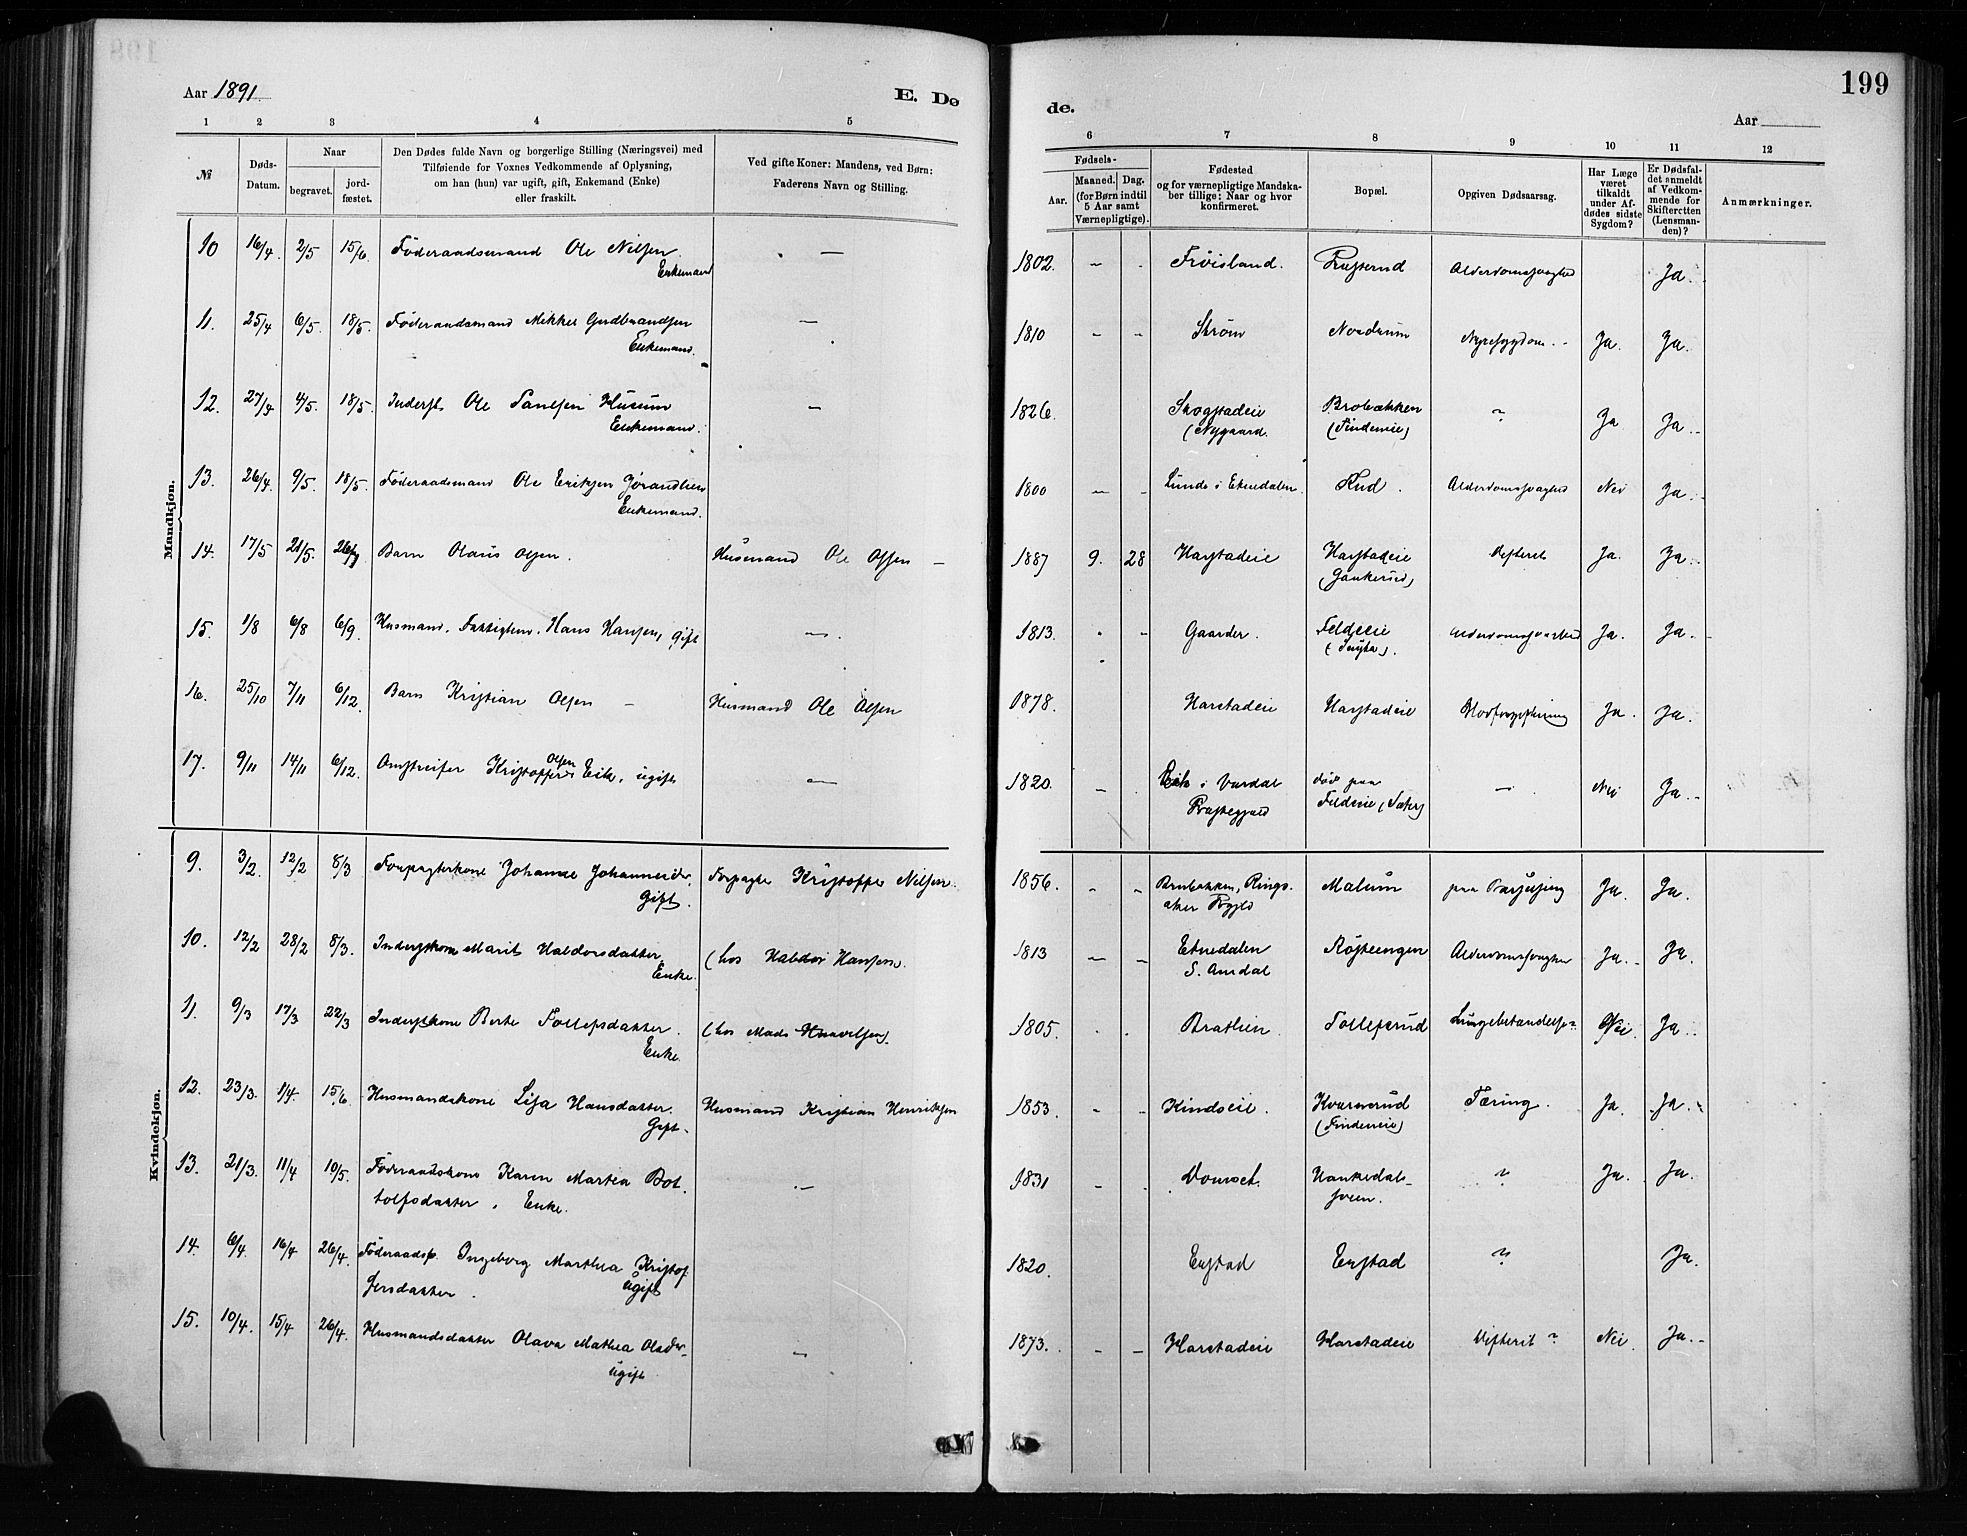 199
Aar 1891.
E. Dø
de.
Aar
1 2 3 4 5
6 7 8 9 10 11 12
№
Døds-
Datum.
Naar
begravet.
jord-
fæstet.
Den Dødes fulde Navn og borgerlige Stilling (Næringsvei) med
Tilføiende for Voxnes Vedkommende af Oplysning,
om han (hun) var ugift, gift, Enkemand (Enke)
eller fraskilt.
Ved gifte Koner: Mandens, ved Børn:
Faderens Navn og Stilling.
Fødsels-
Aar.
Maaned. Dag.
(for Børn indtil
5 Aar samt
Værnepligtige).
Fødested
og for værnepligtige Mandska-
ber tillige: Naar og hvor
konfirmeret.
Bopæl.
Opgiven Dødsaarsag.
Har Læge
været
tilkaldt
under Af-
dødes sidste
Sygdom?
Er Dødsfal-
det anmeldt
af Vedkom-
mende for
Skifteretten
(Lensman-
den)?
Anmærkninger.
Mandkjøn.
10 16/4. 2/5 15/6. Föderaadsmand Ole Nilsen. — 1802. – Frøisland. Alderdomssvaghed Ja.
Enkemand
11. 25/4 6/5. 18/5. Föderaadsmand Mikkel Gudbrandsen — 1810 – – Strøm Nordrum Nyresygdom. Ja. Ja.
Enkemand.
12. 27/4 4/5. 18/5. Inderst Ole Paulsen Husum — 1826. Skogstadeie Brobakken ? Ja Ja.
Enkemand. (Nygaard. (Findeneie)
13. 26/4. 9/5. 18/5. Föderaadsmand Ole Eriksen Jørandlien 1800 – – Lunde i Etnedalen. Hud. Alderdomssvaghed Nei Ja.
Enkemand.
14. 17/5 21/5. Barn Olaus Olsen. Husmand Ole Olsen – 1887 9. 28 Harstadeie Harstadeie Difterit Ja. Ja.
15. 1/8 6/8 6/9. Husmand, Hans Hansen, gift — 1813. Gaarder. Feldeeie Alderdomssvaghed Ja. Ja.
16. 25/10 7/11 6/12. Barn Kristian Olsen – Husmand Ole Olsen 1878. Harstadeie Harstadeie Ja. Ja.
17. 9/11 14/11 6/12. Omstreifer Kristoffer Olsen Eik, ugift — 1820. – Eik i Vardal død paa — Nei Ja.
Præstegjæld Feldeie
Kvindekjøn.
9. 3/2. 12/2 8/3 Forpagterkone Johanne Johannesdr, Forpagter Kristoffer Nilsen. 1856. – – Brubakken, Rings- Malum paa Barselseng Ja. Ja.
Gift. aker Prgjld
10. 12/2 28/2 8/3. Inderstkone Marit Haldorsdatter, (hos Haldor Hansen. 1813 – – Etnedalen Røsteengen Alderdomssvaghed Ja. Ja.
Enke. S. Aurdal
11. 9/3 17/3 22/3 Inderstkone Berte Tollefsdatter. (hos Mads 1805. Bratlien. Tollefsrud Lungebetændelse? Nei. Ja.
Enke.
12. 23/3. 1/4. 15/6. Husmandskone Lisa Hansdatter. Husmand Kristian Henriksen 1853. – – Kindseie. Kvarnerud Tæring. Ja. Ja.
Gift. (Findeneie)
13. 21/3. 11/4 10/5. Föderaadskone Karen Martea Bot- — 1831 – Domset. Hankedals- ? Ja. Ja.
tolfsdatter, Enke. sveen.
14. 6/4. 16/4 26/4. Föderaadsp. Ingeborg Marthea Kristof- 1820. Enstad Enstad ? Ja.
fersdatter. ugift
15. 10/4. 15/4 26/4. Husmandsdatter Olava Mathea Olsdr. — 1873. – – Harstadeie Harstadeie Difterit ? Nei. Ja.
ugift